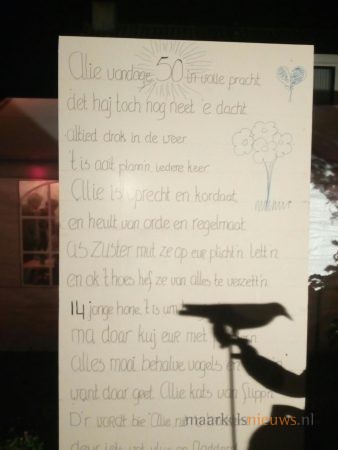 Alie vandage 50 in volle pracht
det haj toch nog neet 'e dacht
altied drok in de weer
't is aait plann'n iedere keer
Alie is oprecht en kordaat
en heult van orde en regelmaat
as zuster mut ze op eur plicht'n lett'n
en ok t' hoes hef ze van alles te verzett'n
14 jonge hane, t is um
ma, daar kuj eur met
alles mooi behalve vogels en
want daor geet Alie kats van flipp'n
D'r wordt bie Alie
deur iets wat
maarkelsnieuws.nl